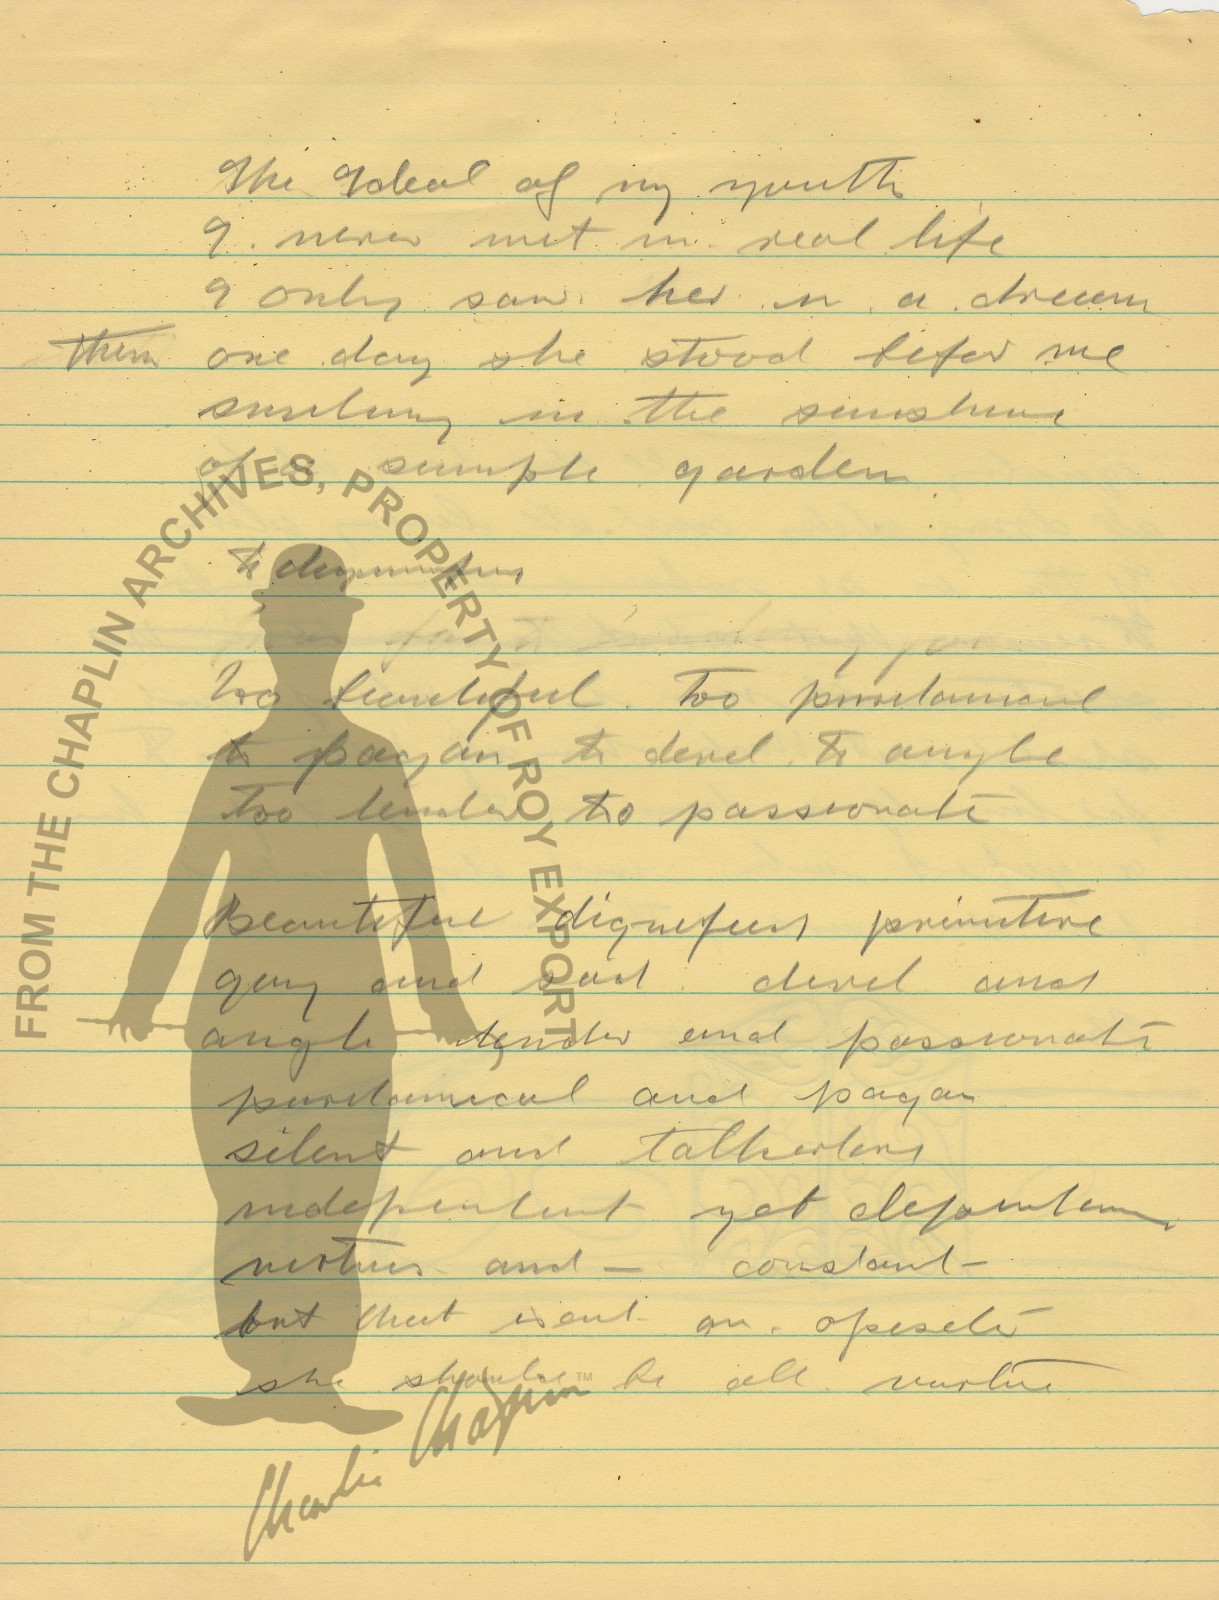 The Ideal of my youth
I never met in real life
I only saw her in a dream
Then one day she stood befor me
smiling in the sunshine
of a simple garden
Too beautiful. Too puritanical
to pagan, to devel. to angle
Too tender to passionate
Beautiful dignefied primitive
gay and sad. devel and
angle tender and passionate
puritanical and pagan
silent and talkative
independent yet dependent
virtues and – constant –
but that isent an oposete
she should be all virtue
FROM THE CHAPLIN ARCHIVES, PROPERTY OF ROY EXPORT
Charlie Chaplin™